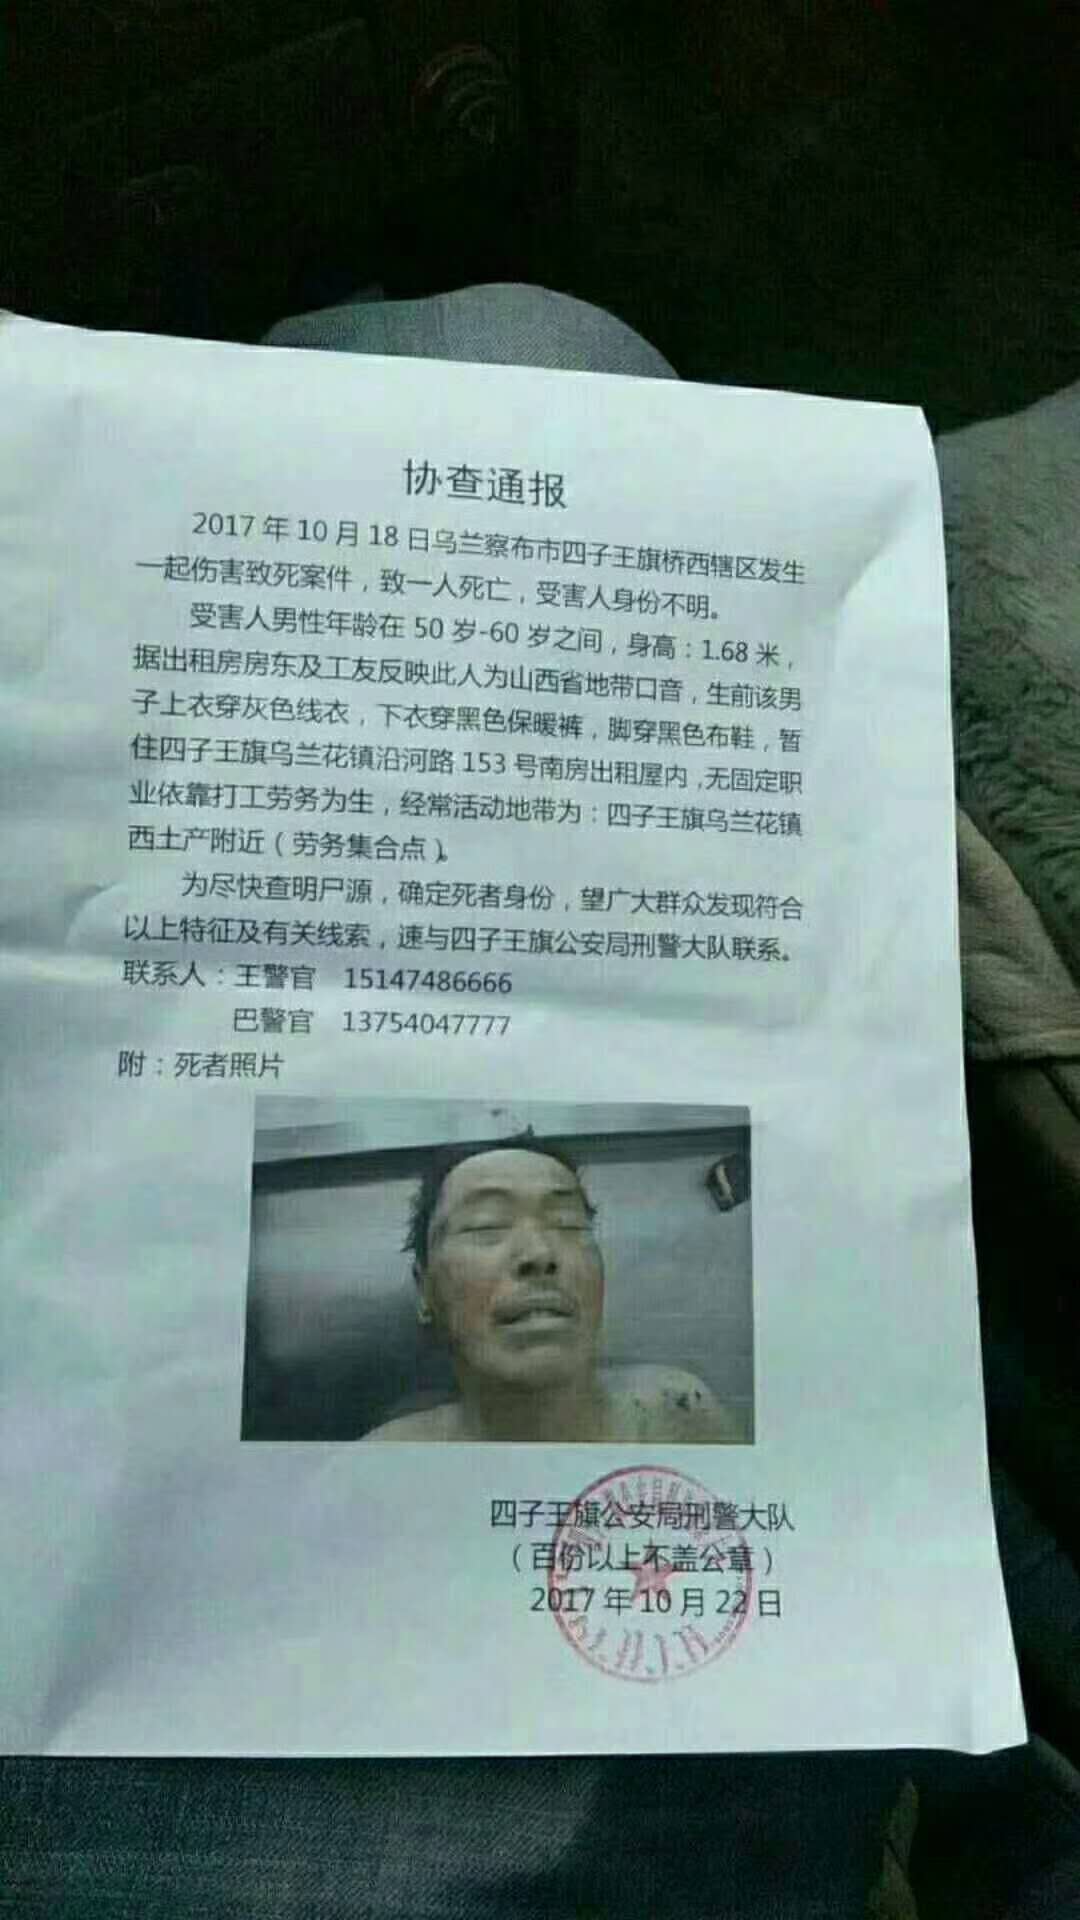 协查通报
2017年10月18日乌兰察布市四子王旗桥西辖区发生
一起伤害致死案件，致一人死亡，受害人身份不明。
受害人男性年龄在50岁-60岁之间，身高：1.68米，
据出租房房东及工友反映此人为山西省地带口音，生前该男
子上衣穿灰色线衣，下衣穿黑色保暖裤，脚穿黑色布鞋，暂
住四子王旗乌兰花镇沿河路153号南房出租屋内，无固定职
业依靠打工劳务为生，经常活动地带为：四子王旗乌兰花镇
西土产附近（劳务集合点）。
为尽快查明尸源，确定死者身份，望广大群众发现符合
以上特征及有关线索，速与四子王旗公安局刑警大队联系。
联系人：王警官 15147486666
巴警官 13754047777
附：死者照片
四子王旗公安局刑警大队
（百份以上不盖公章）
2017年10月22日